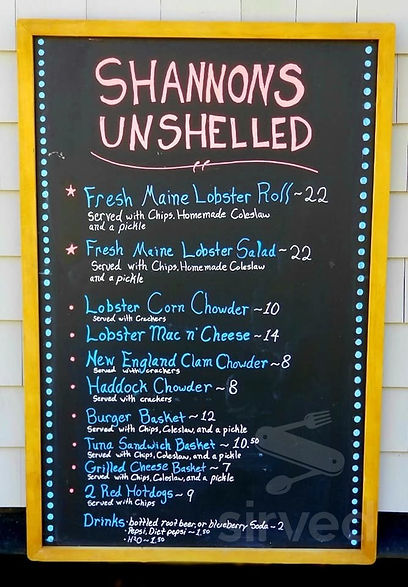 SHANNONS
UNSHELLED
Fresh Maine Lobster Roll ~ 22
Served with Chips, Homemade Coleslaw
and a pickle
Fresh Maine Lobster Salad ~ 22
Served with Chips, Homemade Coleslaw
and a pickle
Lobster Corn Chowder ~ 10
Served with Crackers
Lobster Mac n' Cheese ~ 14
New England Clam Chowder ~ 8
Served with crackers
Haddock Chowder ~ 8
Served with crackers
Burger Basket ~ 12
Served with Chips, Coleslaw, and a pickle
Tuna Sandwich Basket ~ 10.50
Served with Chips, Coleslaw, and a pickle
Grilled Cheese Basket ~ 7
Served with Chips, Coleslaw, and a pickle
2 Red Hotdogs ~ 9
Served with Chips
Drinks • bottled root beer, or blueberry Soda ~ 2
• Pepsi, Diet pepsi ~ 1.50
• H2O ~ 1.50
sirved